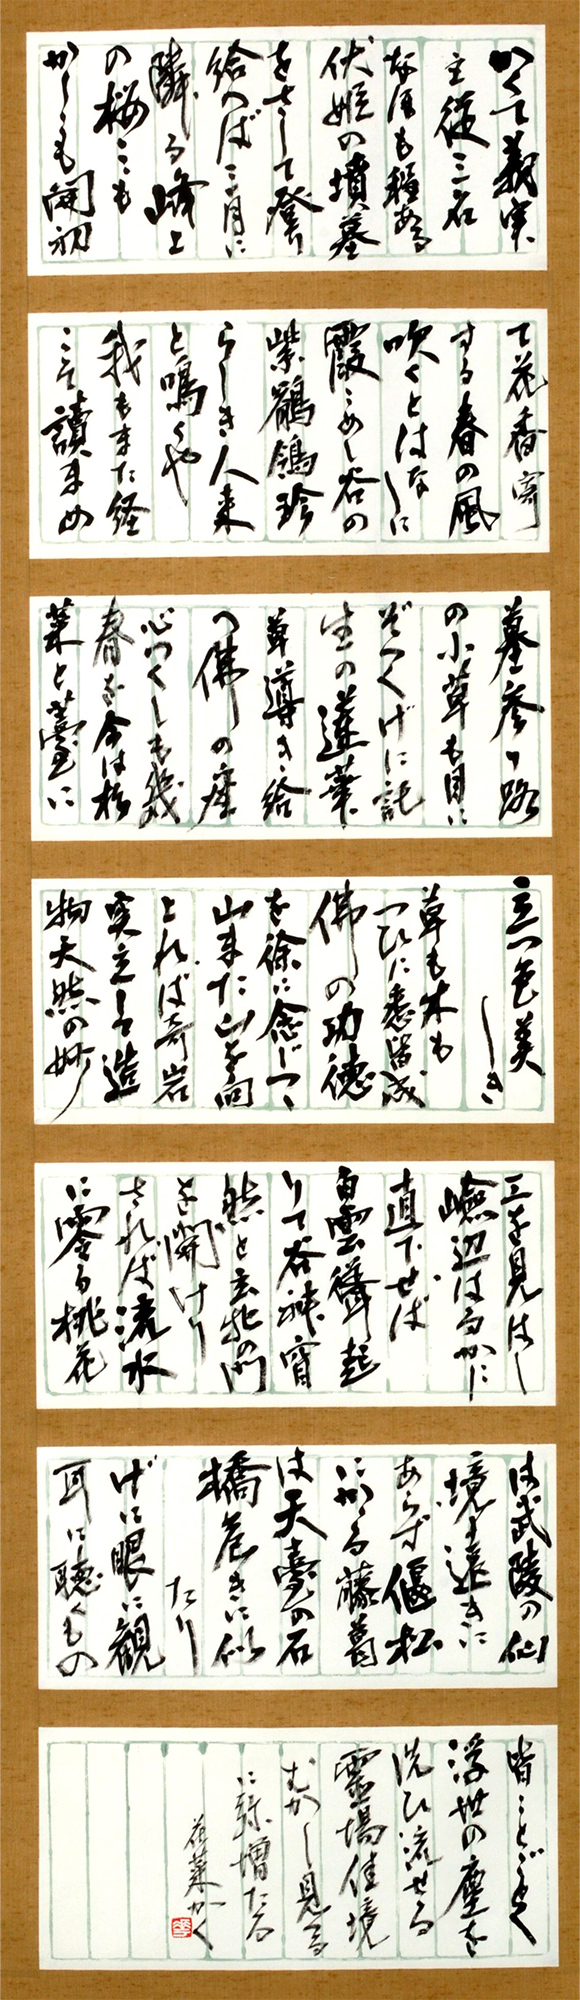 かくて義実
主従三名
なほも程ある
伏姫の墳墓
をさして登り
給へば三月に
隣る峰上
の桜こも
かしも開初
て花香寄
する春の風
吹くとはなしに
霞こめし谷の
柴鶺鴒珍
らしき人来
と鳴くや
我もまた経
こそ讀まめ
墓参り路
の小草も目に
ぞつくげに託
生の蓮華
草導き給
へ佛の座
心つくしも幾
春を今は松
菜と薹に
立つ色美
しき
草も木も
つひに悉皆成
佛の功徳
を徐に念じつゝ
山また山を向
上れば奇岩
突立しる造
物天然の妙
工を見はし
嶮辺はるかに
直下せば
白雲聳起
りて谷神窅
然と玄牝の門
を開けり
されば流水
に零る桃花
は武陵の仙
境も遠きに
あらず偃松
にかゝる藤葛
は天臺の石
橋危きに似
たり
げに眼に観
耳に聴くもの
皆ことごとく
浮世の塵を
洗ひ流せる
霊場佳境
むかし見る
に弥増たる
花葉かく